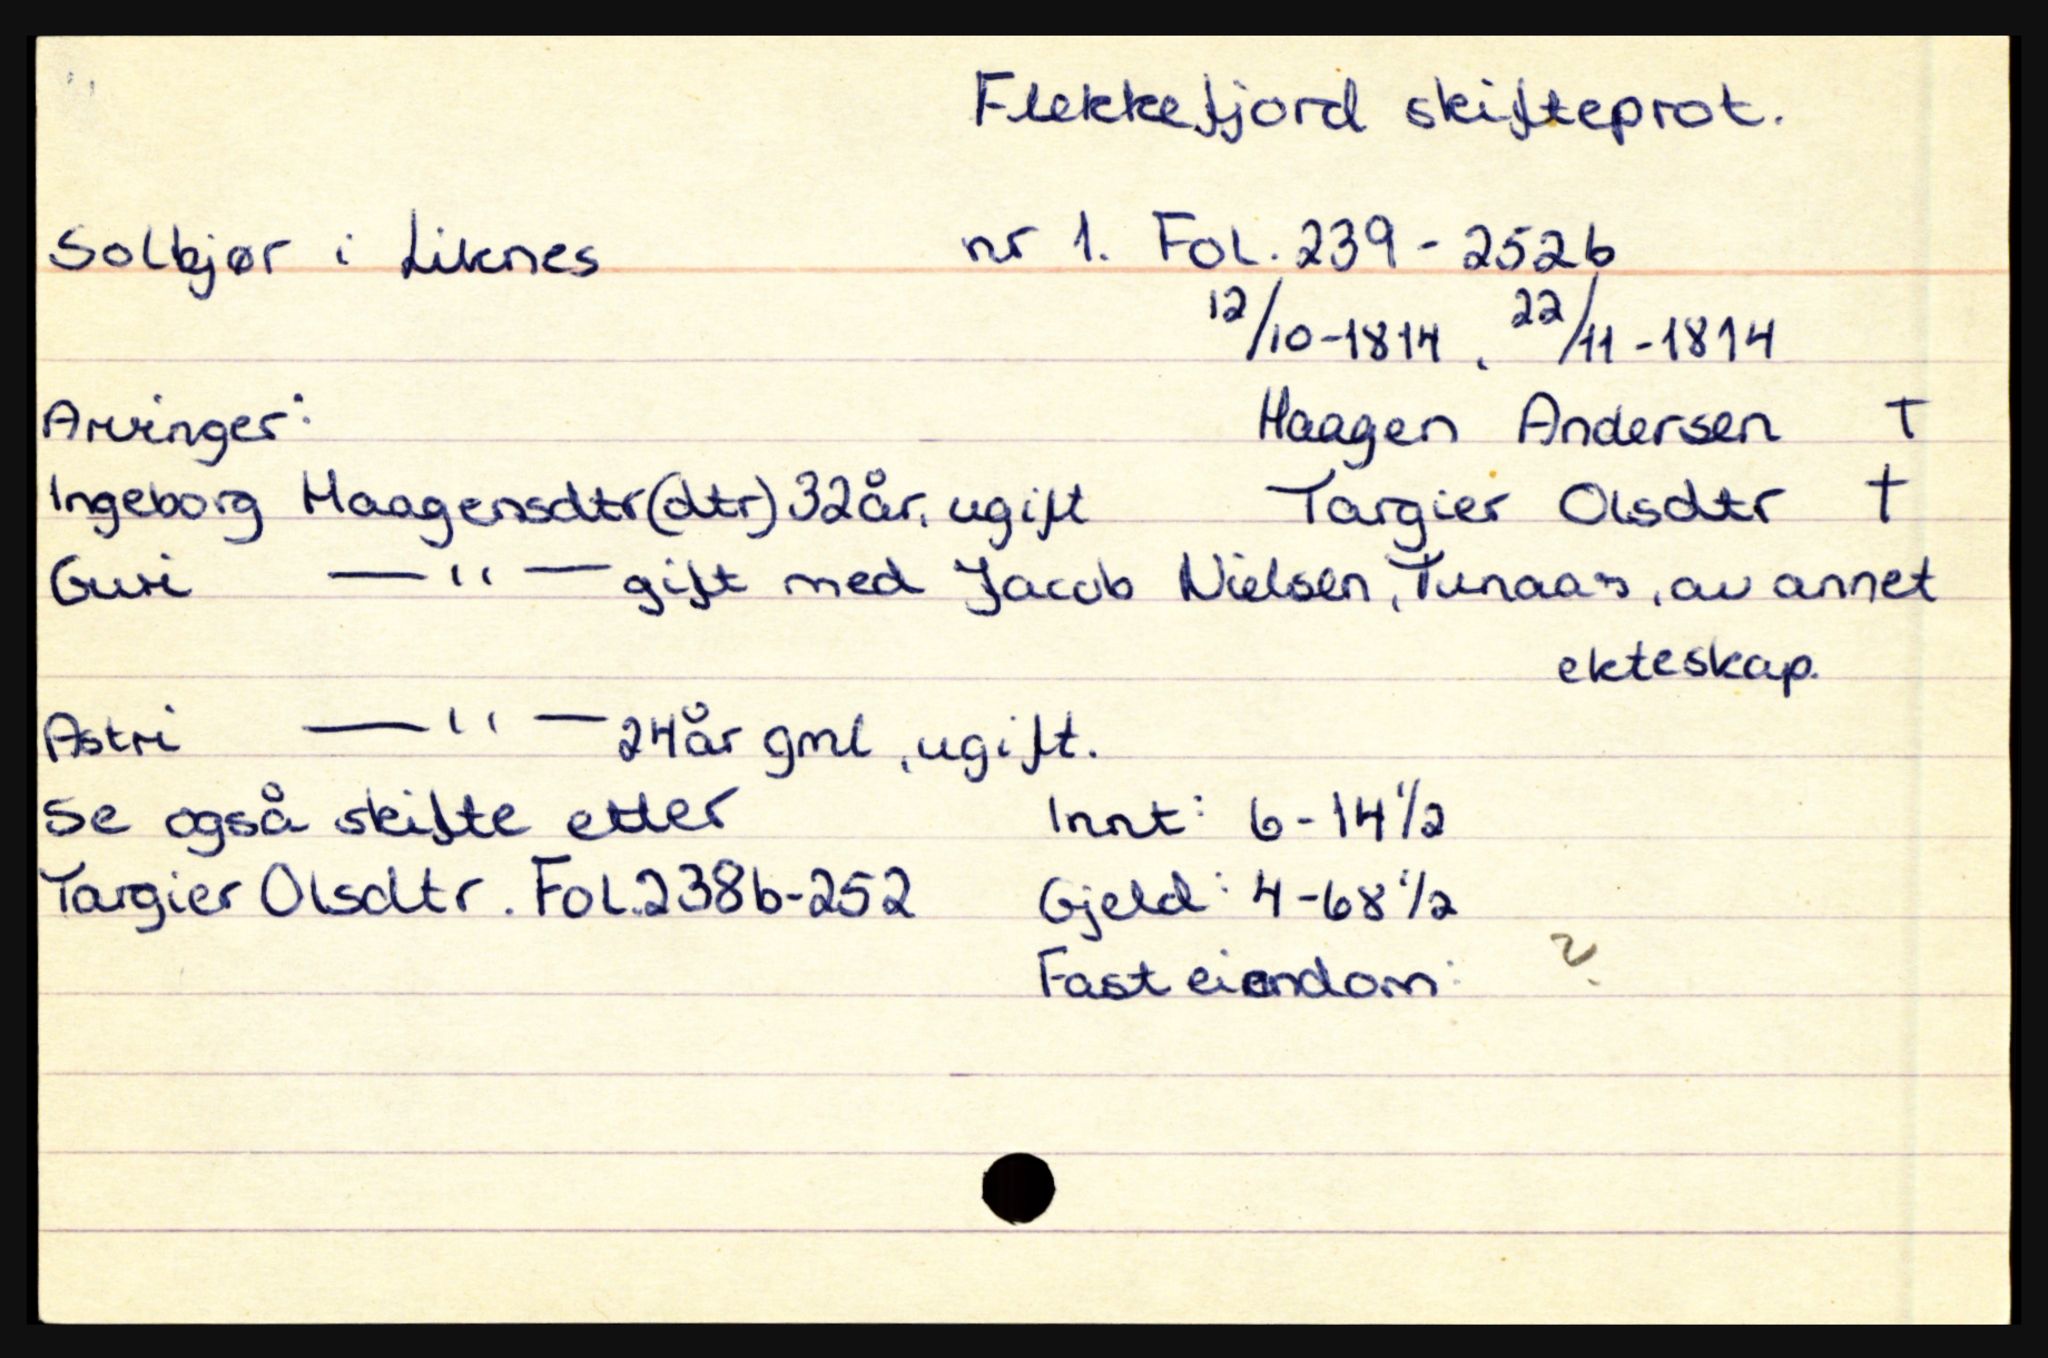 Flekkefjord skifteprot.
Solbjør i Liknes nr 1. Fol. 239 - 252b
12/10-1814, 22/11-1814
Arvinger: Haagen Andersen †
Ingeborg Haagensdtr (dtr) 32år, ugift Targier Olsdtr †
Guri —"— gift med Jacob Nielsen, Tunaas, av annet
ekteskap.
Astri —"— 24år gml, ugift.
Se også skifte etter Innt: 6-14 1/2
Targier Olsdtr. Fol. 238b-252 Gjeld: 4-68 1/2
Fast eiendom: ?